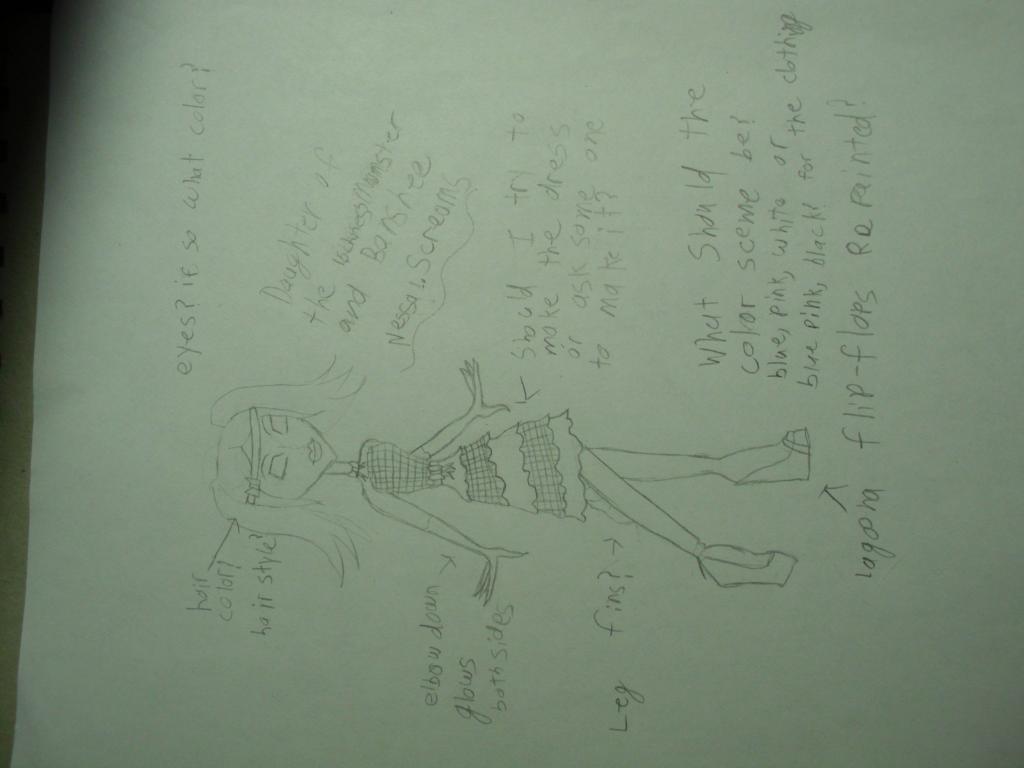 eyes? if so what color?
hair
color?
hair style?
Daughter of
the
and
Banshee
Nessa L. Screams
Should I try to
make the dress
or ask some one
to make it?
elbow down
glows
both sides
Leg fins?
What Should the
color sceme be?
blue, pink, white or
blue pink, black? for the clothing
Lagoona flip-flops Repainted?